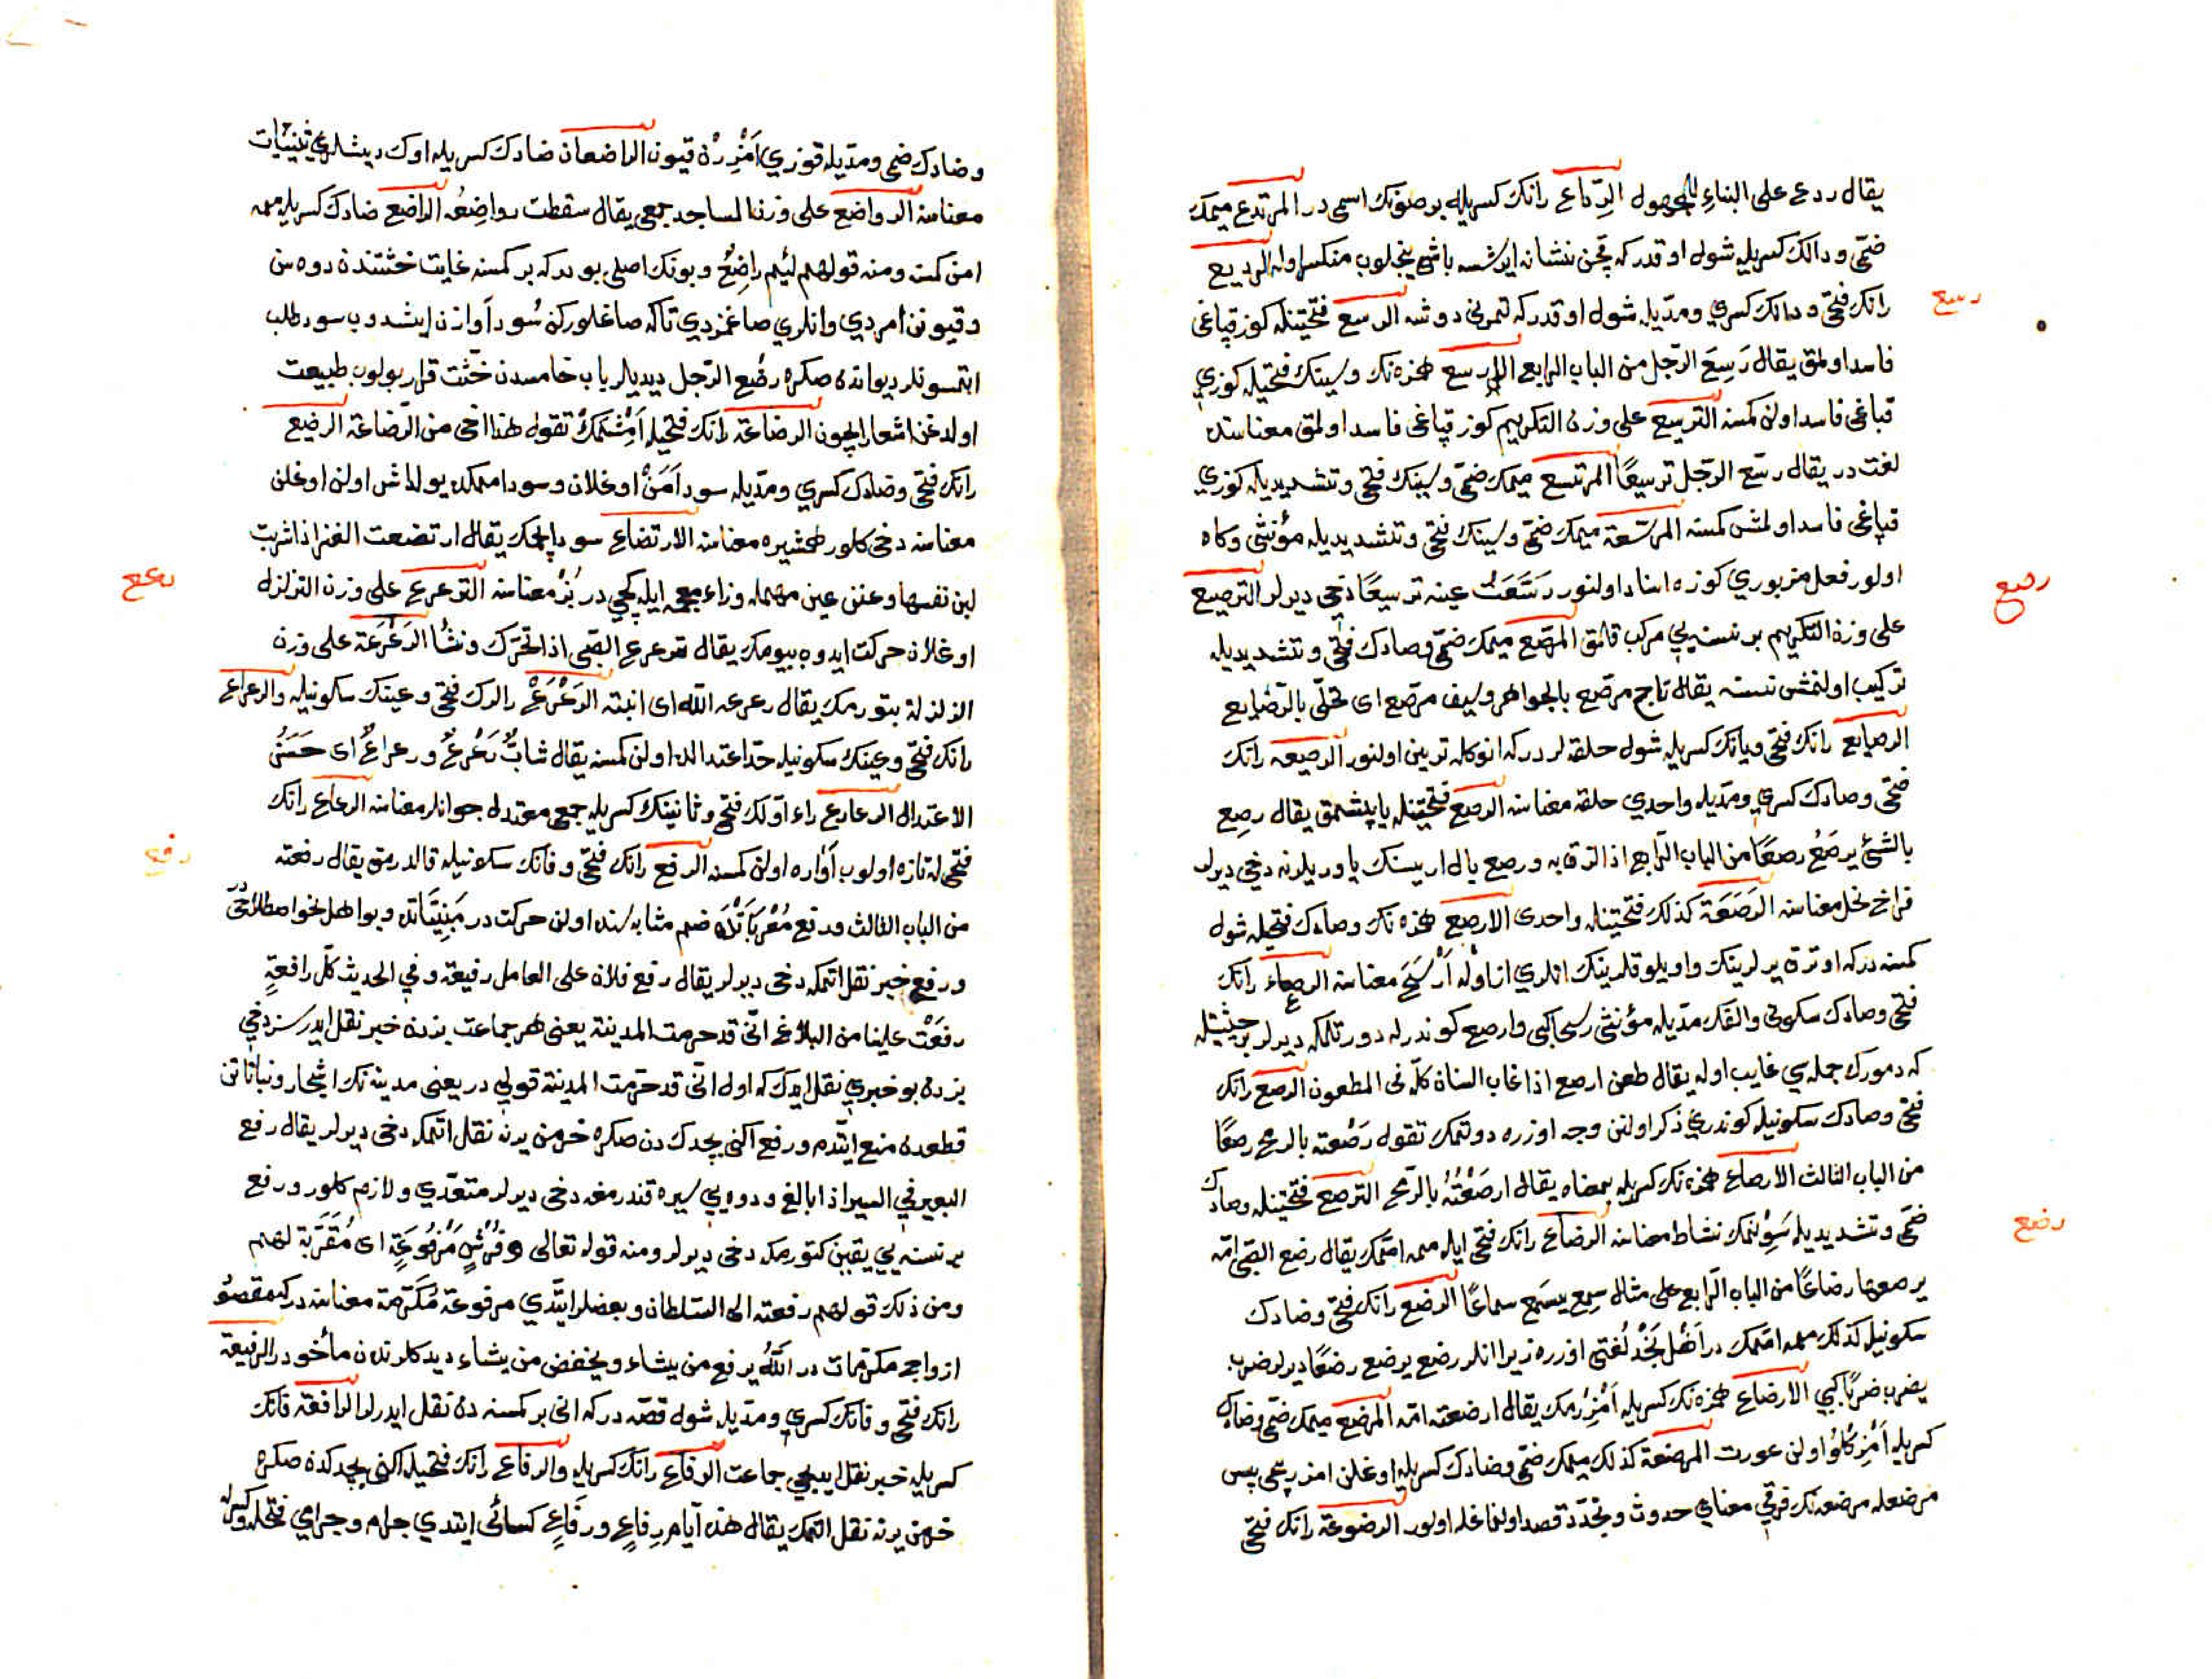 يقال ردع على البناء للمجهول الرداع رانك كسريله بوصفونك اسمى در المرتدع ميمك
ضمى و دالك كسريله شول اوقدر كه قچن نشانه ايرشسه باشى ينجلوب منكسر اوله الرديع
رانك فتحى و دالك كسري ومديله شول اوقدر كه تمرنى دوشه الرسع فتحتينله كوز قپاغى
رسع
فاسد اولمق يقال رَسِعَ الرجل من الباب الرابع الارسع همزه نك وسينك فتحيله كوزي
قپاغى فاسد اولن كمسنه الترسيع على وزن التكريم كوز قپاغى فاسد اولمق معناسنه
لغت در يقال رسّع الرجل ترسيعًا المرسع ميمك ضمى وسينك فتحى وتشديديله كوزي
قپاغى فاسد اولمش كمسنه المرسّعة ميمك ضمى وسينك فتحى وتشديديله مؤنثى وكاه
اولور فعل مزبوري كوزه اسناد اولنور رَسَّعَتْ عينه ترسيعًا دخى ديرلر الترصيع
رصع
على وزن التكريم بر نسنه يى مركب قلمق المرصّع ميمك ضمى وصادك فتحى وتشديديله
تركيب اولنمش نسنه يقال تاج مرصّع بالجواهر وسيف مرصّع اى محلّى بالرصايع
الرصايع رانك فتحى ويانك كسريله شول حلقه لردركه انوكله تزيين اولنور الرصيعه رانك
فتحى وصادك كسري ومديله واحدي حلقه معناسنه الرصع فتحتينله ياپشمق يقال رصِع
بالشئ يرصَعُ رصعًا من الباب الرابع اذا لزق به ورصع بال اريسنك ياوريلرنه دخى ديرلر
فراخ نحل معناسنه الرَصَعَة كذلك فتحتينله واحدى الارصع همزه نك وصادك فتحيله شول
كمسنه دركه اوترة يرلرينك واويلوقلرينك اتلري از اوله اَرْسَحَ معناسنه الرصعاء رانك
فتحى وصادك سكونى والفك مديله مؤنثى رسحا كبى وارصع كوندرله دورتلمكه ديرلر بر حيثيتله
كه دمورك جمله سى غايب اوله يقال طعن ارصع اذا غاب السنان كلّه فى المطعون الرصع رانك
فتحى وصادك سكونيله كوندري ذكر اولنن وجه اوزره دورتمك تقول رَصَعْته بالرمح رصعًا
من الباب الثالث الارصاع همزه نك كسريله بمعناه يقال ارصَعْتُهُ بالرمح الترصع فتحتينله وصادك
ضمى وتشديديله سَوِنمك نشاط معناسنه الرضاع رانك فتحى ايله ممه امّمك يقال رضع الصبى امّه
رضع
يرضعها رضاعًا من الباب الرابع على مثال سمِع يسمَع سماعًا الرضع رانك فتحى وضادك
سكونيله كذلك ممه امّمك در اَهْل نَجْد لُغتى اوزره زيرا انلر رضع يرضع رضعًا ديرلر ضرب
يضرب ضربًا كبى الارضاع همزه نك كسريله اَمْزِرْمك يقال ارضعته امّه المرضع ميمك ضمى وضادك
كسريله اَمْزِكْلُو اولن عورت المرضعة كذلك ميمك ضمى وضادك كسريله اوغلن امزرجى پس
مرضعله مرضعه نك فرقى معناي حدوث وتجدد قصد اولنماغله اولور الرضوعة رانك فتحى
وضادك ضمى ومديله قوزي اَمْزِرَن قيون الراضعان ضادك كسريله اوك ديشلري ثنيتان
معناسنه الرواضع على وزن المساجد جمعى يقال سقطت رواضِعُه الراضع ضادك كسريله ممه
امن كمسنه ومنه قولهم لئيم راضِعٌ وبونك اصلى بودركه بر كمسنه غايت خسّتندن دوه سن
وقيونن امردي وانلري صاغمزدي تاكه صاغلوركن سُود آوازن ايشدوب سود طلب
ايتمسونلر ديو اندن صكره رضُع الرجل ديديلر باب خامسدن خسّت قرار بولوب طبيعت
اولدغن اشعار ايچون الرضاعة رانك فتحيله اَمِشْمَكْ تقول هذا اخى من الرضاعة الرضيع
رانك فتحى وضادك كسري ومديله سود اَمَنْ اوغلان وسود امكده يولداش اولن اوغلن
معناسنه دخى كلور همشيره معناسنه الارتضاع سود ايچمك يقال ارتضعت العنز اذا شربت
لبن نفسها وعنز عين مهمله وزاء معجمه ايله كچى در بُزْ معناسنه الترعرع على وزن التزلزل
رعع
اوغلان حركت ايدوب بيومك يقال ترعرع الصبى اذا تحرّك ونشأ الرَعْرَعَة على وزن
الزلزلة بتورمك يقال رعرعه الله اى انبته الرَعْرَعْ رالرك فتحى وعينك سكونيله والرعراع
رانك فتحى وعينك سكونيله حدّ اعتدالده اولن كمسنه يقال شابٌّ رَعْرعٌ ورعراعٌ اى حَسَنُ
الاعتدال الرعارع راء اوّلك فتحى وثانينك كسريله جمعى معتدل جوانلر معناسنه الرعاع رانك
فتحيله تازه اولوب آواره اولن كمسنه الرفع رانك فتحى وفانك سكونيله قالدرمق يقال رفعته
رفع
من الباب الثالث ورفع مُعْرَبَاتْدَه ضم مثابه سنده اولن حركت در مَبنِيّاتده وبو اهل نحو اصطلاحى در
ورفع خبر نقل اتمكه دخى ديرلر يقال رفع فلان على العامل رفيعة وفي الحديث كلّ رافعةٍ
رفعَتْ علينا من البلاغ انّى قد حرمت المدينة يعنى هر جماعت بزدن خبر نقل ايدرسز دخى
بزدن بو خبري نقل ايدك كه اول انّى قد حرّمت المدينة قولي در يعنى مدينه نك اشجار ونباتاتن
قطعدن منع ايتدم ورفع اكنى بچدكدن صكره خرمن يرنه نقل اتمكه دخى ديرلر يقال رفع
البعير في السير اذا بالغ ودوه يي سيره قندرمغه دخى ديرلر متعدّي ولازم كلور ورفع
بر نسنه يي يقين كتورمكه دخى ديرلر ومنه قوله تعالى وفُرُشٍ مَرْفُوعَةٍ اى مُقَرّبَة لهم
ومن ذلك قولهم رفعته الى السلطان وبعضلر ايتدي مرفوعة مُكَرّمة معناسنه دركه مقصود
ازواج مكرّمات در اللّهُ يرفع من يشاء ويخفض من يشاء ديدكلرندن مأخوددر الرفيعة
رانك فتحى وفانك كسري ومديله شول قصّه دركه انى بر كمسنه دن نقل ايدرلر الرافعة فانك
كسريله خبر نقل ايديجى جماعت الرفاع رانك كسريله والرفاع رانك فتحيله اكنى بچدكدن صكره
خرمن يرنه نقل اتمك يقال هذه ايام رِفاعٍ ورَفاعٍ كسائى ايتدي جرام وجرامي فتحله وكسرله